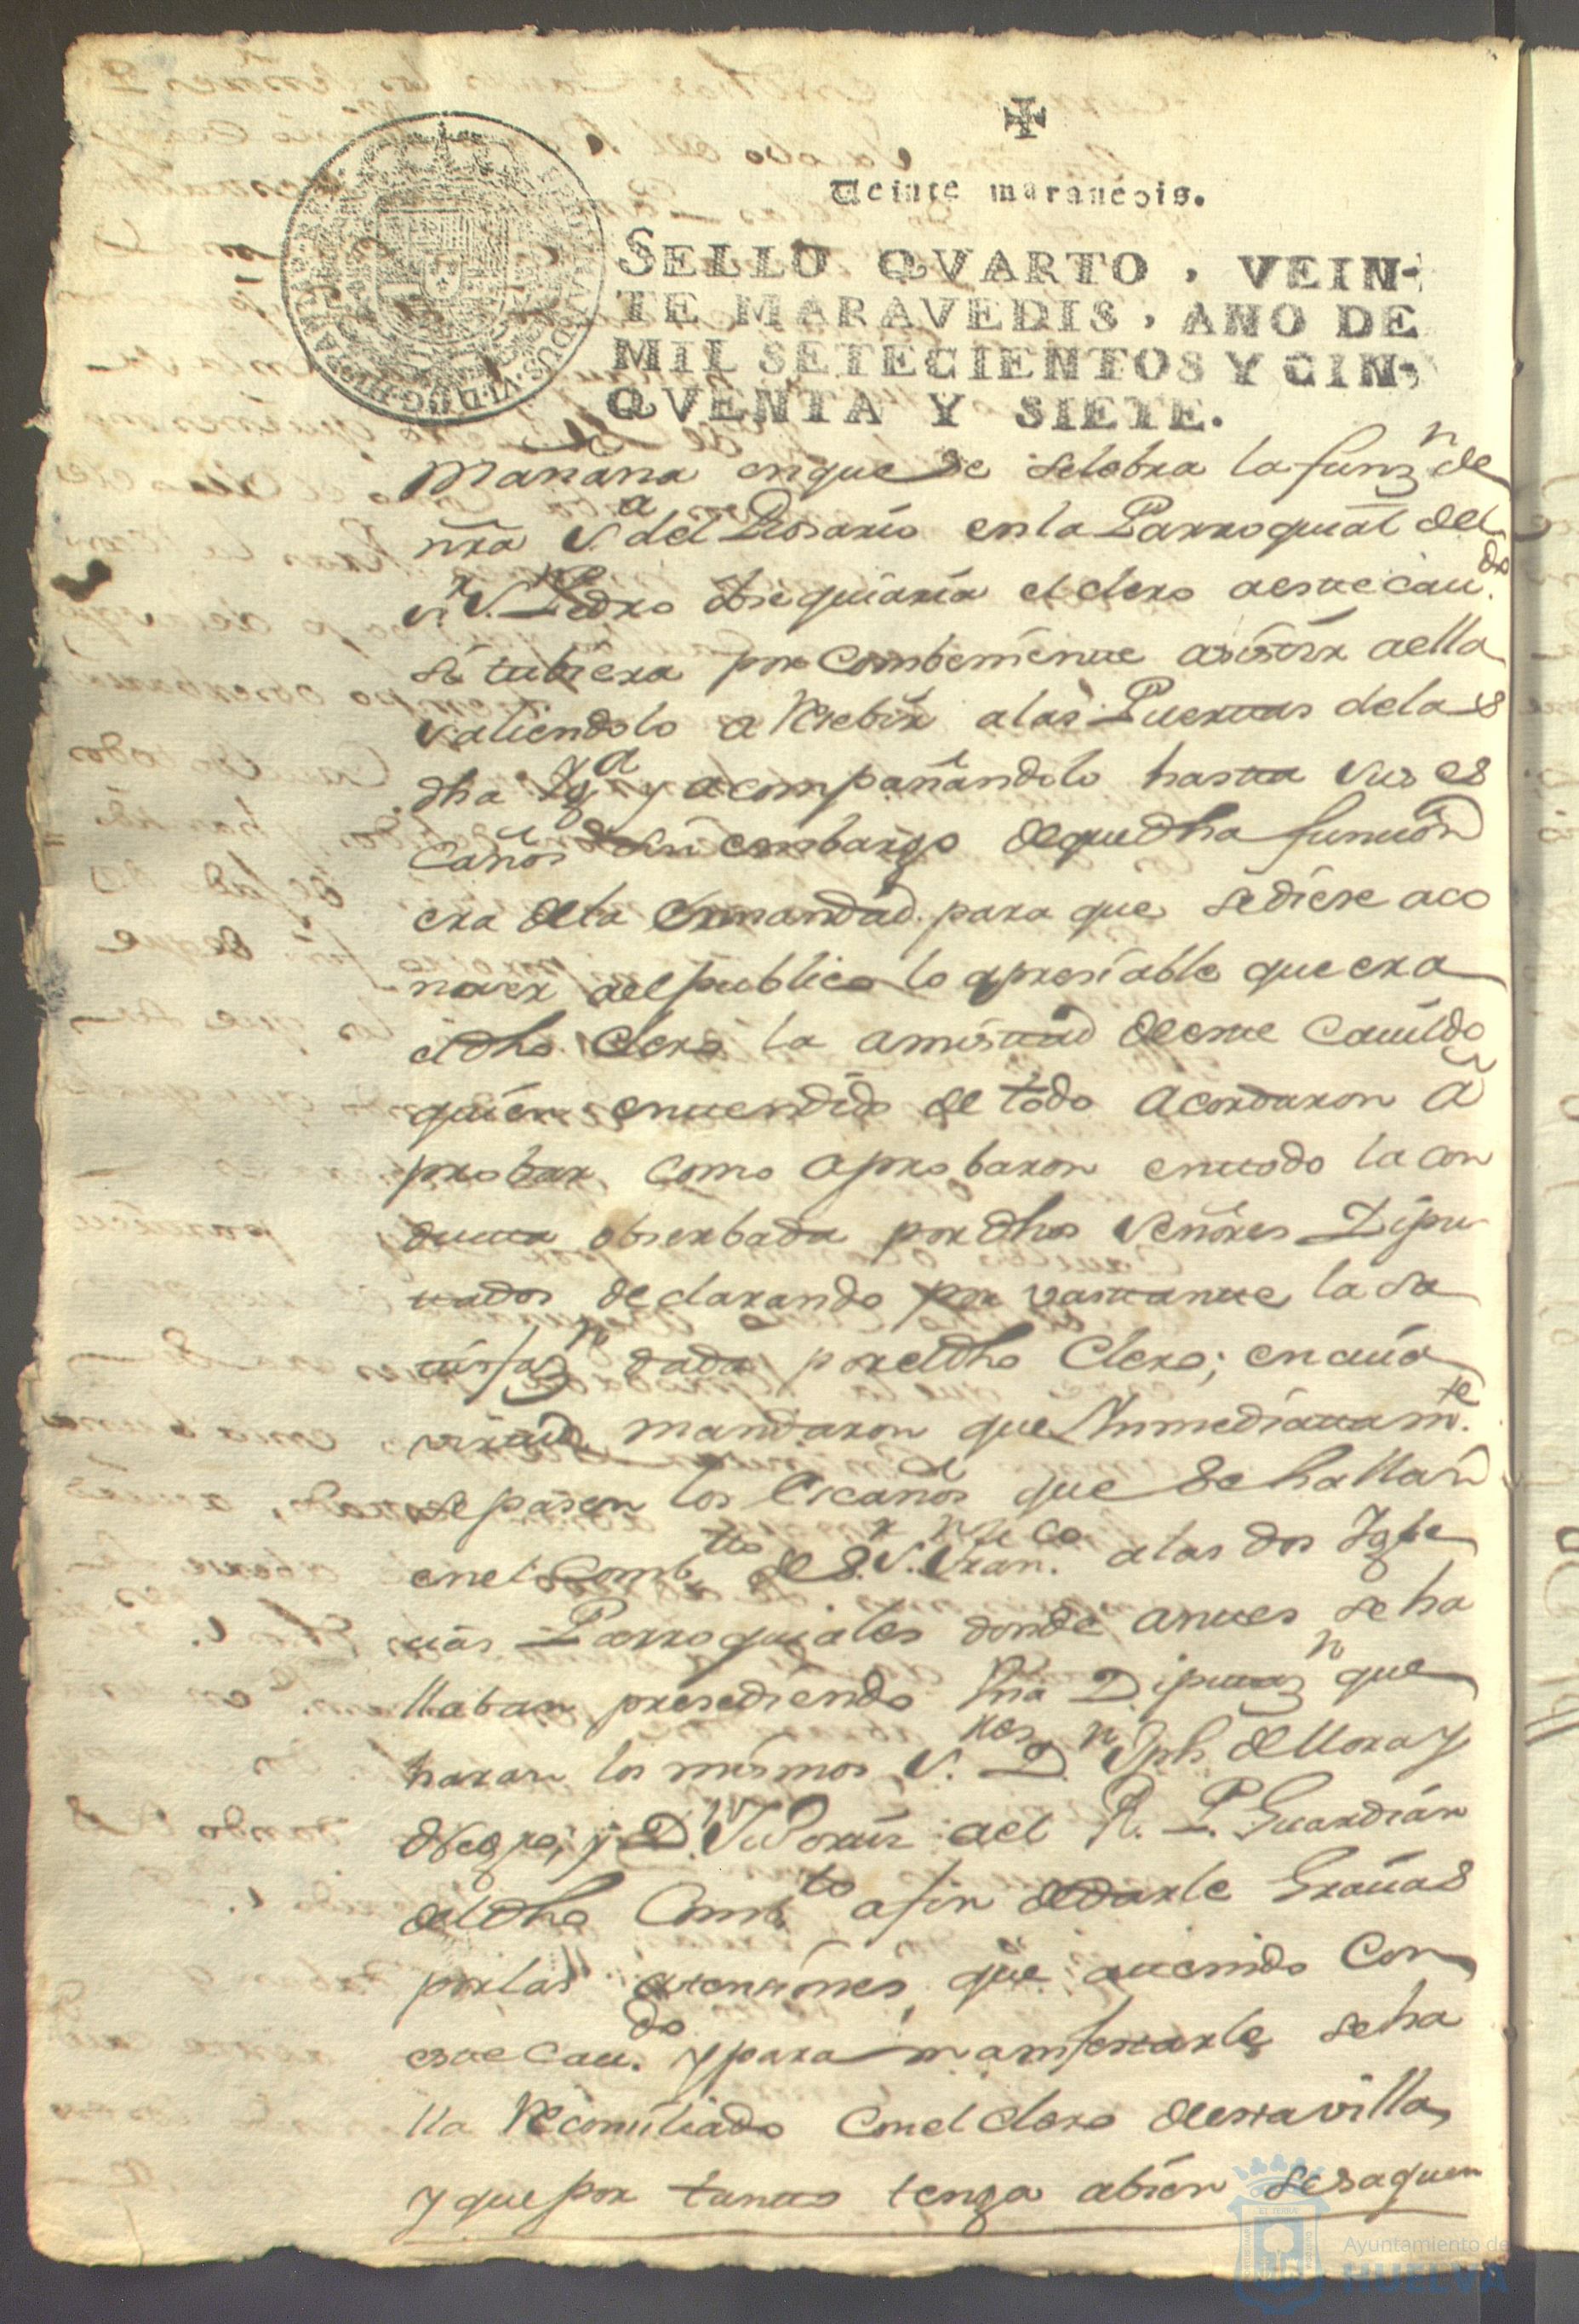 Veinte maravedis.
SELLO QVARTO, VEIN-
TE MARAVEDIS, AÑO DE
MIL SETECIENTOS Y CIN-
QVENTA Y SIETE.
Mañana enque se selebra la funzn de
nra Sa del Rosario enla Parroquial del
Sr S. Pedro obsequiaria el clero aeste Cau.do
si tubiera por combeniente asistir aella
saliendolo a Resebir alas Puertas dela
dha Yga y acompañandolo hasta sus es
caños sin embargo deque dha funcion
era dela Ermandad para que sediese aco
nocer al publico lo apresiable que era
aldho Clero la amistad deeste Cauildo
quien entendido de todo acordaron a
probar como aprobaron entodo la con
ducta obserbada por dhos Señores Dipu
tados declarando por vastante la sa
tisfazn dada por eldho Clero; encuia
virtud mandaron que Ynmediatamte
se pasen los Escaños que se hallan
enel Combto de Sr S. Franco alas dos Ygle
cias Parroquiales donde antes se ha
llaban presediendo Vna Diputazn que
haran los mismos Sres Dn Jph de Mora y
Negro, y Dn Ortiz al R. P. Guardian
deldho Combto afin dedarle Gracias
porlas atensiones que atenido Con
este Cau.do y para manifestarle seha
lla Reconciliado Conel clero deesta villa
y que por tanto tenga abien sesaquen
Ayuntamiento de
HUELVA